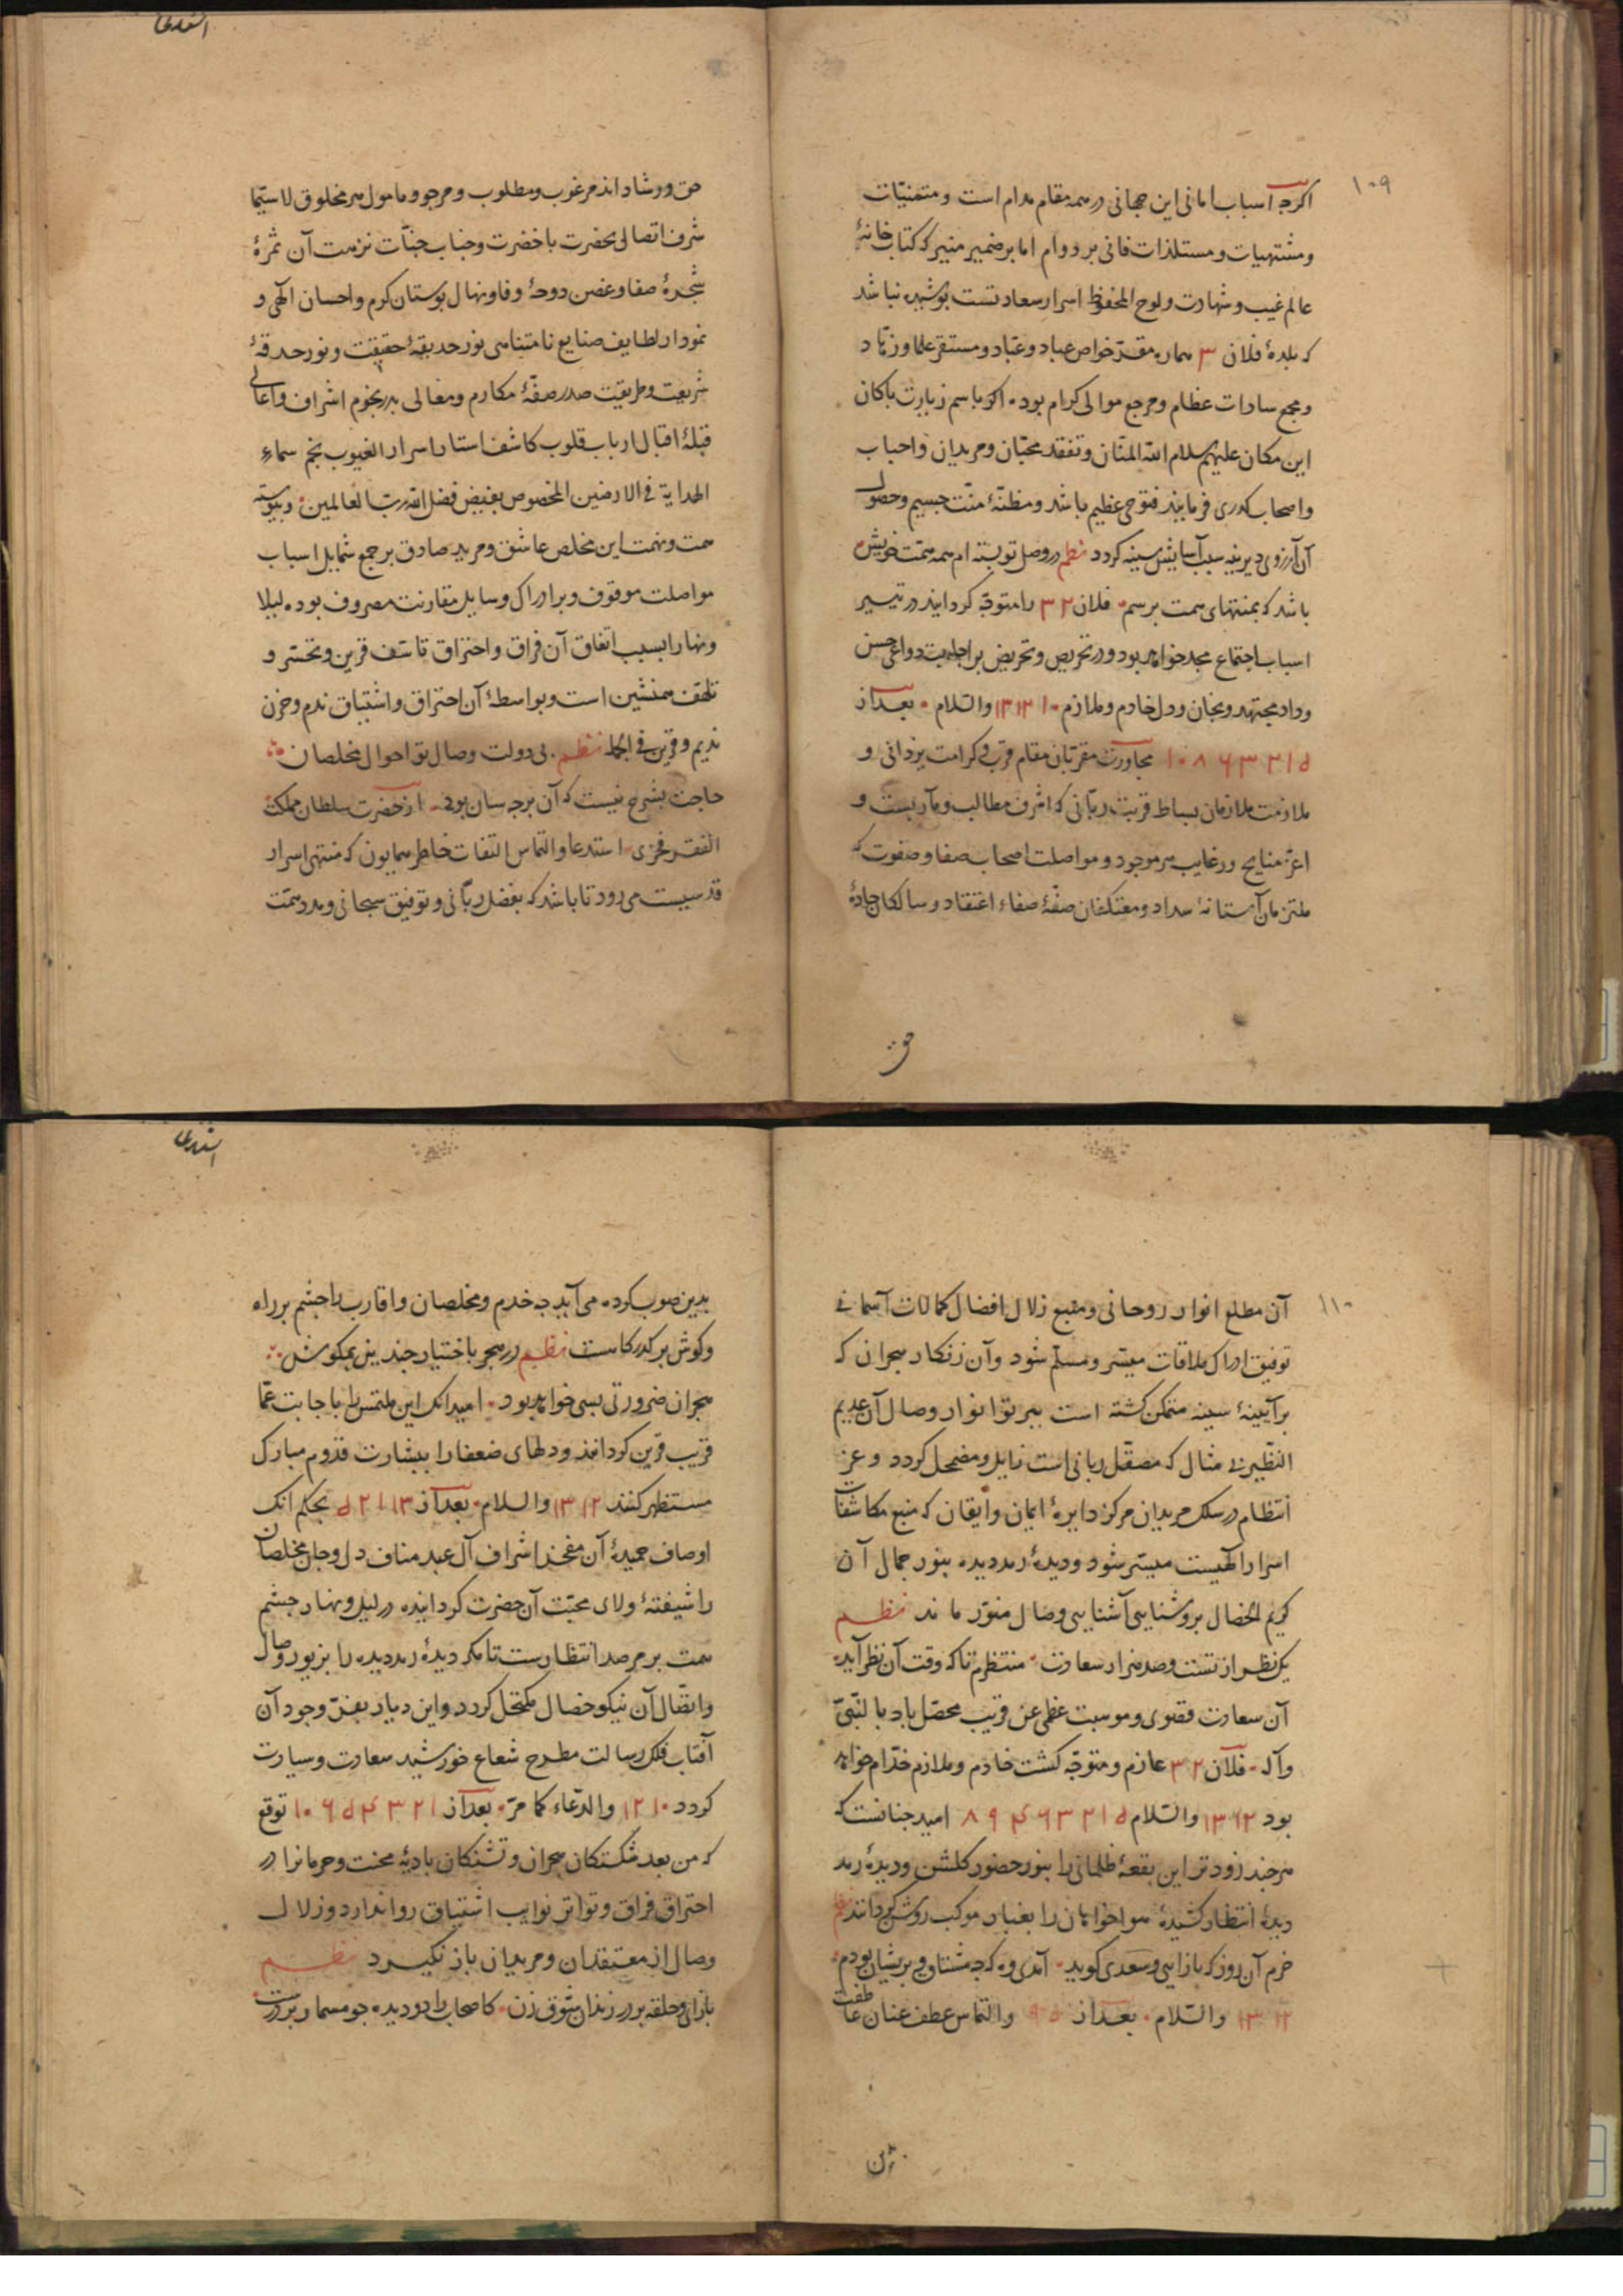 ۱۰۹
اکرچه اسباب امانی این جهانی در همه مقام مدام است و متمنیّات
و مشتهیات و مستلذات فانی بر دوام اما بر ضمیر منیر که کتاب خانهٔ
عالم غیب و شهادت و لوح المحفوظ اسرار سعادتست پوشیده نباشد
که بلدهٔ فلان ۳ همان مقرّ خواص عباد و عبّاد و مستقر علما و زهّاد
و مجمع سادات عظام و مرجع موالی کرام بوده اکر باسم زیارت پاکان
این مکان علیهم سلام اللّه المنّان و تفقد محبّان و مریدان و احباب
و اصحاب کدری فرمایند فتوحی عظیم باشد و مظنّهٔ منّت جسیم و حصول
آن آرزوی دیرینه سبب آسایش سینه کردد نظم در وصل تو بسته ام همه همّت خویش
باشد که بمنتهای همت برسم فلان ۳۲ را متوجّه کردانید در تیسیر
اسباب اجتماع مجد خواهد بود و در تحریص و تحریض بر اجابت دواعی حسن
وداد مجتهد و بجان و دل خادم و ملازم ۱۰ ۱۲ ۱۳ والسّلام بعد از
۱۰ ۸ ۶ ۳ ۲ ۱ ۵ مجاورت مقرّبان مقام قرب و کرامت یزدانی و
ملازمت ملازمان بساط قربت ربّانی که اشرف مطالب و مآربست و
اعزّ منایح و رغایب هر موجود و مواصلت اصحاب صفا و صفوت که
ملتزمان آستانهٔ سداد و معتکفان صفّهٔ صفاء اعتقاد و سالکان جادهٔ
حق
حق و رشاد اند مرغوب و مطلوب و مرجو و مامول هر مخلوق لا سیّما
شرف اتصال بحضرت باخضرت و جناب جنّات نزهت آن ثمرهٔ
شجرهٔ صفا و غصن دوحهٔ وفا و نهال بوستان کرم و احسان الهی و
نمودار لطایف صنایع نامتناهی نور حدیقهٔ حقیقت و نور حدقهٔ
شریعت و طریقت صدر صفّهٔ مکارم و معالی بدر نجوم اشراف و اعالی
قبلهٔ اقبال ارباب قلوب کاشف استار اسرار الغیوب نجم سماء
الهدایة فی الارضین المخصوص بفیض فضل اللّه ربّ العالمین و پیوسته
همت و نهمت این مخلص عاشق و مرید صادق بر جمع شمایل اسباب
مواصلت موقوف و بر ادراک وسایل مقارنت مصروف بوده لیلا
و نهارا بسبب اتفاق آن فراق و احتراق تاسّف قرین و تحسّر و
تلهّف همنشین است و بواسطهٔ آن احتراق و اشتیاق ندم و حزن
ندیم و قرین فی الجمله نظم بی دولت وصال تو احوال مخلصان
حاجت بشرح نیست که آن بر چه سان بود از حضرت سلطان مملکت
الفقر فخری استدعا و التماس التفات خاطر همایون که منتهی اسرار
قدسیست می رود تا باشد که بفضل ربّانی و توفیق سبحانی و مدد همّت
۱۱۰
آن مطلع انوار روحانی و منبع زلال افضال کمالات آسمانی
توفیق ادراک ملاقات میسّر و مسلّم شود و آن زنکار هجران که
بر آیینهٔ سینه متمکن کشته است ببرتو انوار وصال آن عدیم
النّظیر بی مثال که مصقّل ربانی است زایل و مضمحل کردد و عزّ
انتظام در سلک مریدان مرکز دایرهٔ ایمان و ایقان که منبع مکاشفات
اسرار الهیست میسّر شود و دیدهٔ رمد دیده بنور جمال آن
کریم الخصال بروشنایی آشنایی وصال منوّر ماند نظم
یک نظر از تست و صد هزار سعادت منتظرم تا که وقت آن نظر آید
آن سعادت قصوی و موهبت عظمی عن قریب محصّل باد بالنّبیّ
و آله فلان ۳۲ عازم و متوجّه کشت خادم و ملازم خدّام خواهد
بود ۱۲ ۱۳ والسّلام ۸ ۹ ۴ ۶ ۳ ۲ ۱ ۵ امید چنانست که
هر چند زودتر این بقعهٔ ظلمانی را بنور حضور کلشن و دیدهٔ رمد
دیدهٔ انتظار کشیدهٔ هواخواهان را بغبار موکب روشن کردانند نظم
خرم آن روز که بازایی و سعدی کوید آمدی وه که چه مشتاق و پریشان بودم
۱۲ ۱۳ والسّلام بعد از ۵ ۹ والتماس عطف عنان عاطفت
بدین صوب کرده می آید چه خدم و مخلصان و اقارب را چشم بر راه
و کوش بر کدرکاست نظم در هجر باختیار چندین بمکوش
هجران ضرورتی بسی خواهد بود امید انک این ملتمس را باجابت عمّا
قریب قرین کردانند و دلهای ضعفا را ببشارت قدوم مبارک
مستظهر کنند ۱۲ ۱۳ والسلام بعد از ۵ ۲ ۱ ۱۳ بحکم انک
اوصاف حمیدهٔ آن مفخر اشراف آل عبد مناف دل و جان مخلصان
را شیفتهٔ ولای محبّت آن حضرت کردانیده در لیل و نهار چشم
همت بر مرصد انتظارست تا مکر دیدهٔ رمد دیده را بزیور وصال
و اتّصال آن نیکو خصال مکتحل کردد و این دیار بفرّ وجود آن
آفتاب فلک رسالت مطرح شعاع خورشید سعادت و سیادت
کردد ۱۰ ۱۲ والدّعاء کما مرّ بعد از ۱۰ ۶ ۵ ۴ ۳ ۲ ۱ توقع
که من بعد شکستکان هجران و تشنکان بادیهٔ محنت و حرمانرا در
احتراق فراق و تواتر نوایب اشتیاق روا ندارد و زلال
وصال از معتقدان و مریدان باز نکیرد نظم
بازآی و حلقه بر در زندان شوق زن کاصحاب را دو دیده چو مسمار بر درست